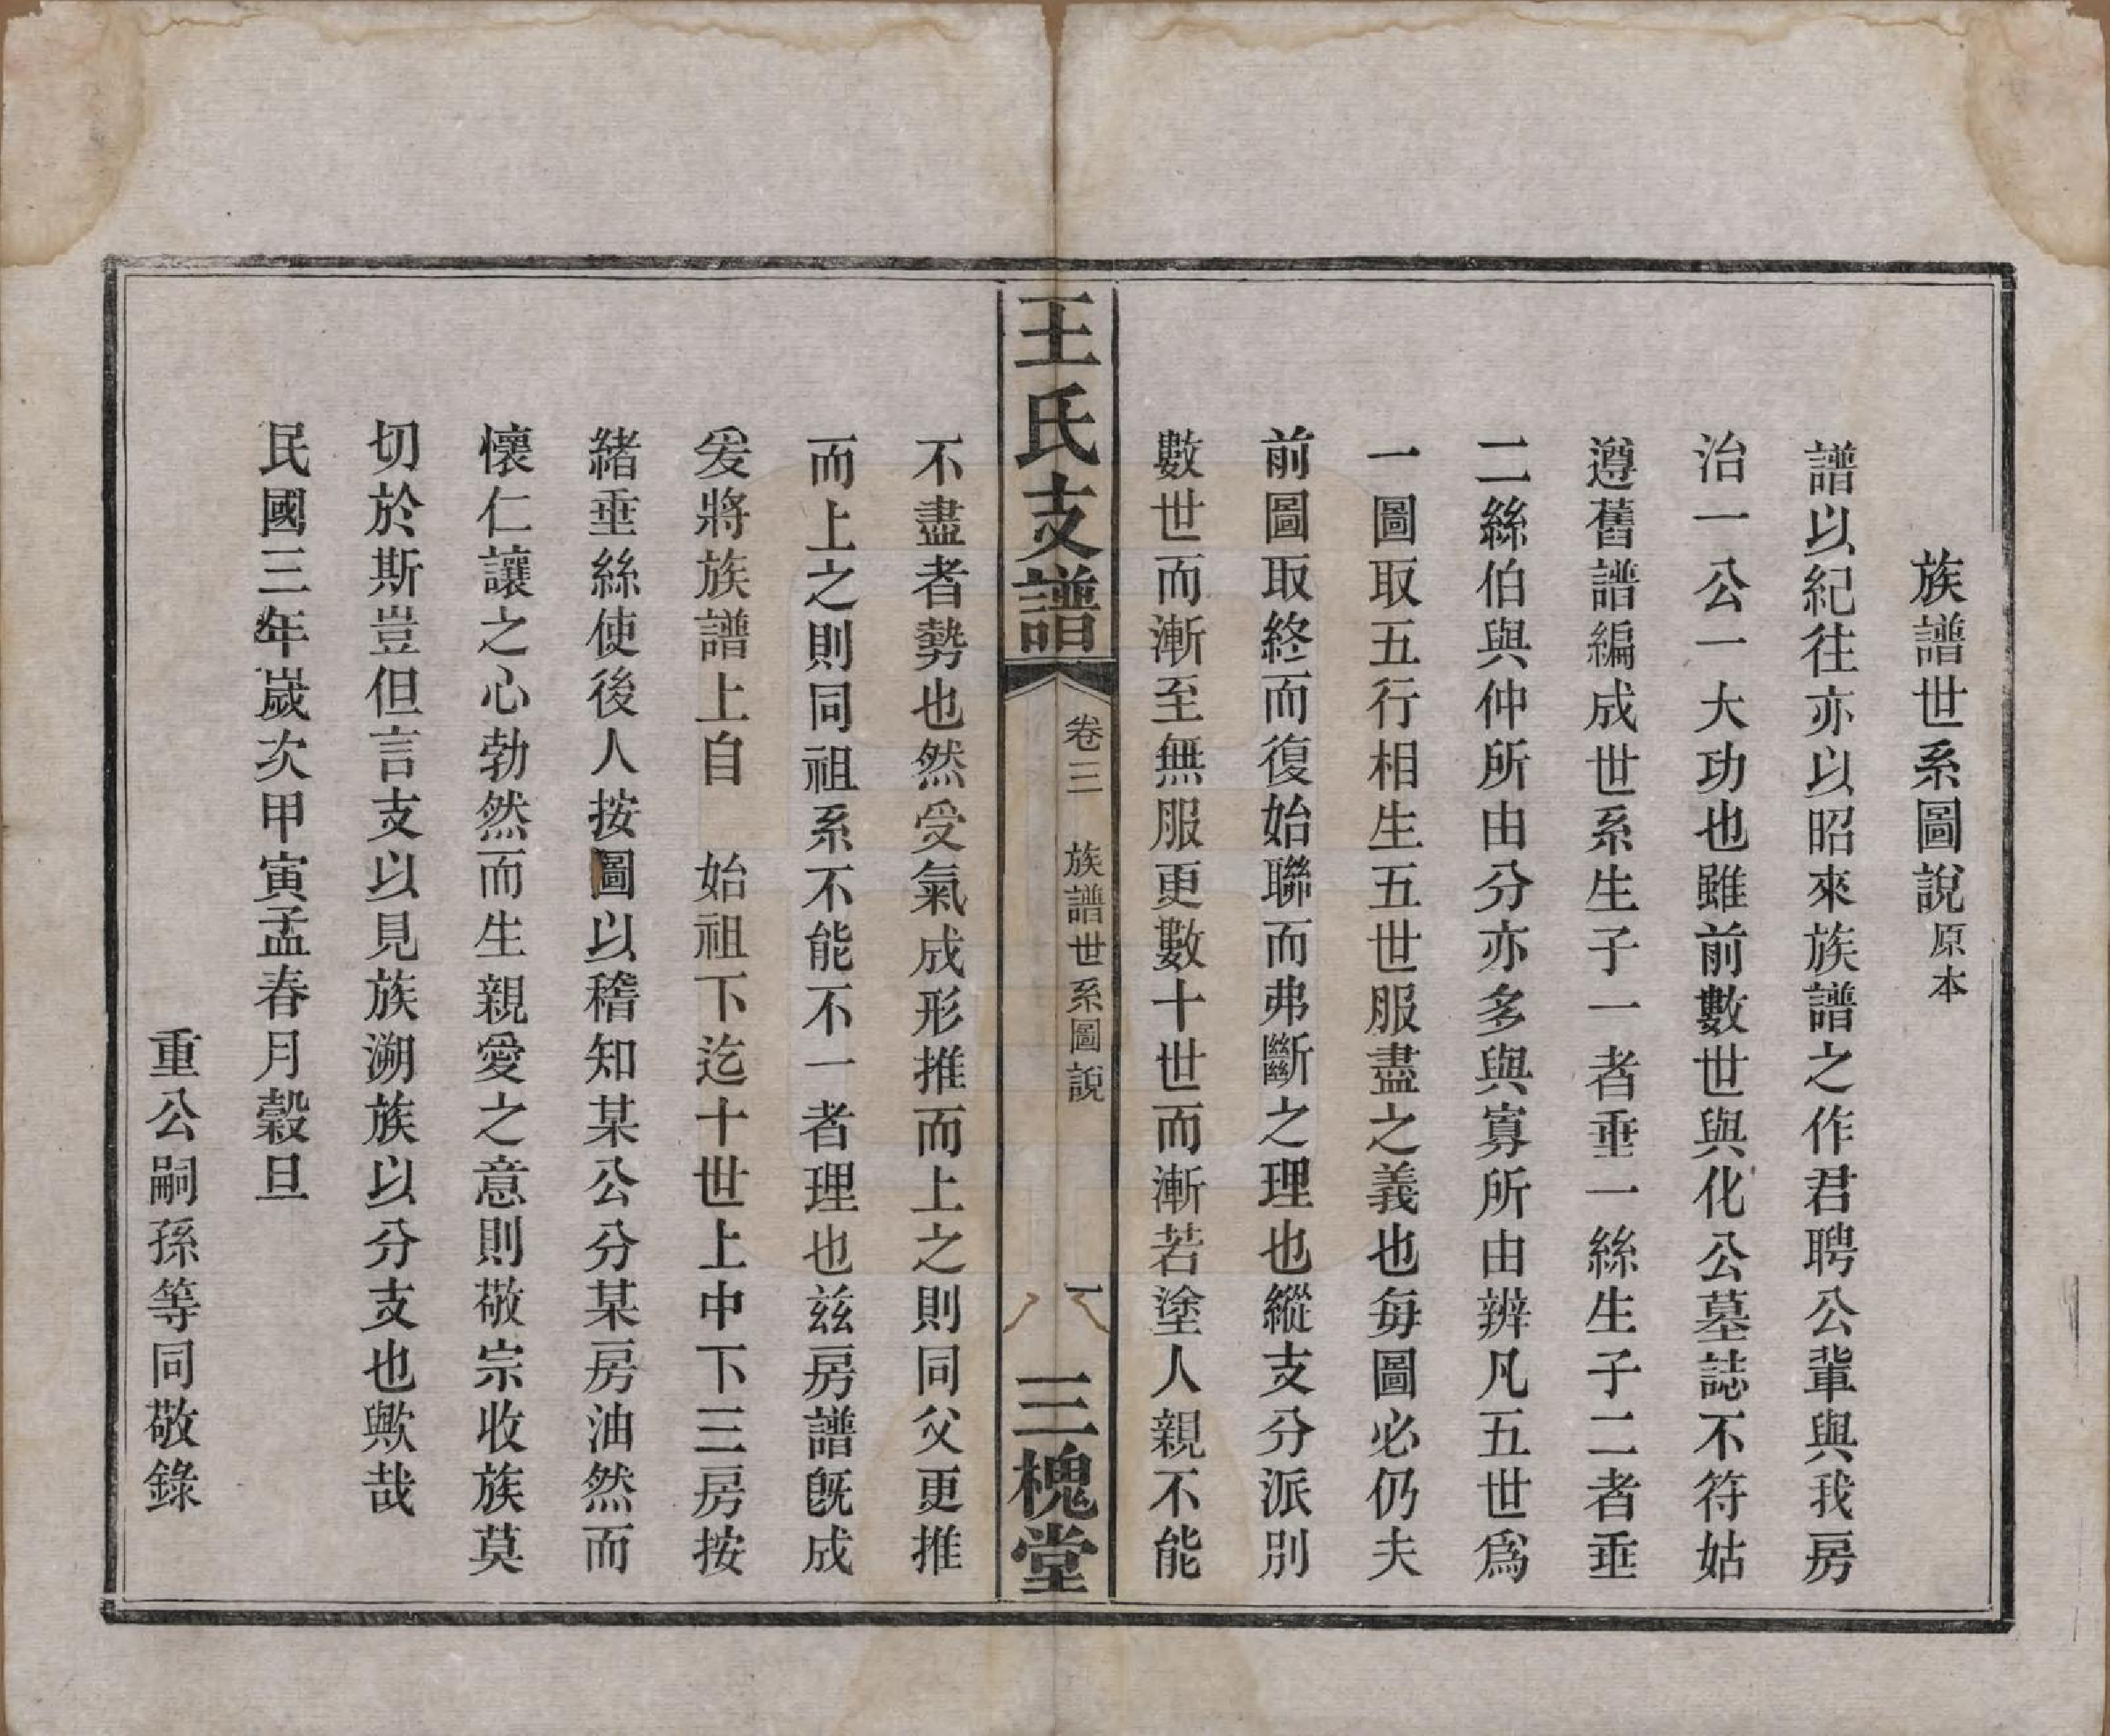 族譜世系圖說原本
譜以紀往亦以昭來族譜之作君聘公輩與我房
治一公一大功也雖前數世與化公墓誌不符姑
遵舊譜編成世系生子一者垂一絲生子二者垂
二絲伯與仲所由分亦多與寡所由辨凡五世爲
一圖取五行相生五世服盡之義也每圖必仍夫
前圖取終而復始聯而弗斷之理也縱支分派別
數世而漸至無服更數十世而漸若塗人親不能
王氏支譜
卷三 族譜世系圖說
一
三槐堂
不盡者勢也然受氣成形推而上之則同父更推
而上之則同祖系不能不一者理也茲房譜既成
爰將族譜上自 始祖下迄十世上中下三房按
緒垂絲使後人按圖以稽知某公分某房油然而
懷仁讓之心勃然而生親愛之意則敬宗收族莫
切於斯豈但言支以見族溯族以分支也歟哉
民國三年歲次甲寅孟春月穀旦
重公嗣孫等同敬錄